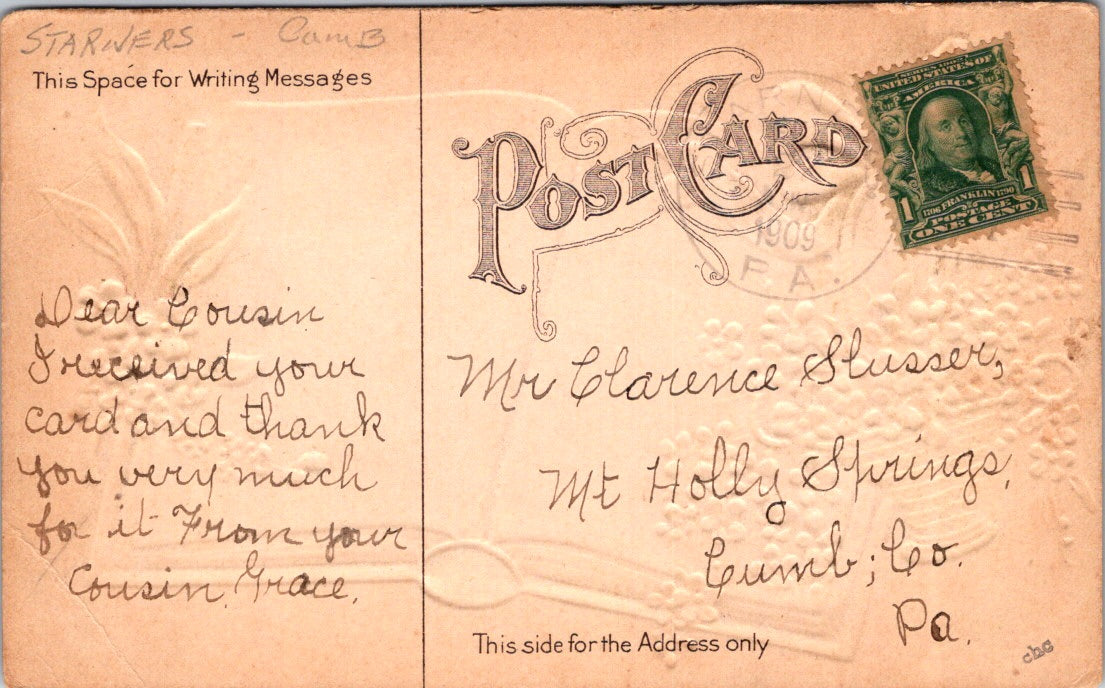 STARNERS - CUMB
This Space for Writing Messages
POST CARD
1909
PA.
SERIES 1902
UNITED STATES OF
AMERICA
1706 FRANKLIN 1790
1 1
POSTAGE
ONE CENT
Dear Cousin
I received your
card and thank
you very much
for it From your
Cousin Grace.
Mr Clarence Slusser,
Mt Holly Springs,
Cumb; Co.
Pa.
This side for the Address only
chg